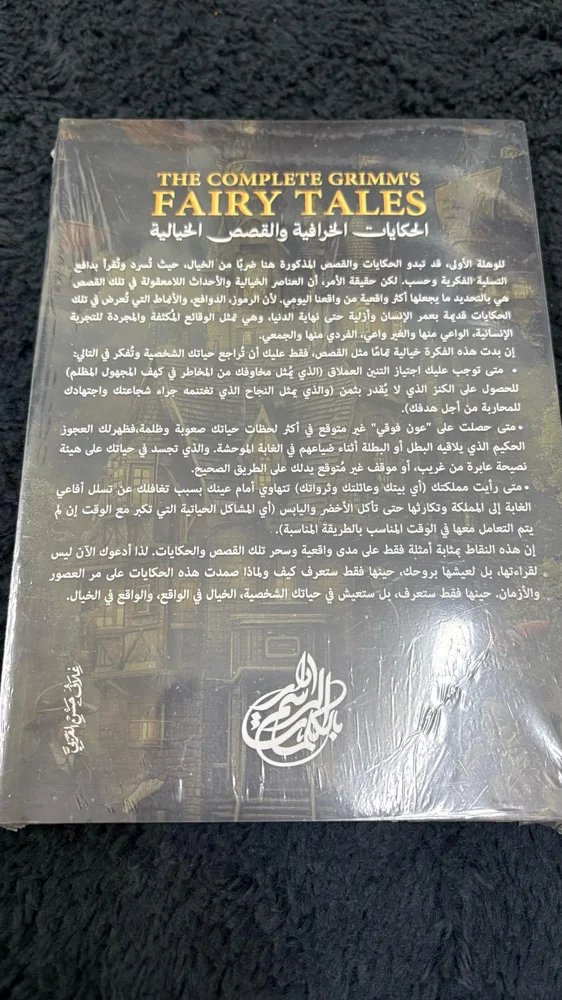 THE COMPLETE GRIMM'S
FAIRY TALES
الحكايات الخرافية والقصص الخيالية
للوهلة الأولى، قد تبدو الحكايات والقصص المذكورة هنا ضربًا من الخيال، حيث تُسرد وتُقرأ بدافع
التسلية الفكرية وحسب. لكن حقيقة الأمر، أن العناصر الخيالية والأحداث اللامعقولة في تلك القصص
هي بالتحديد ما يجعلها أكثر واقعية من واقعنا اليومي. لأن الرموز، الدوافع، والأنماط التي تُعرض في تلك
الحكايات قديمة بعمر الإنسان وأزلية حتى نهاية الدنيا، وهي تمثل الوقائع المُكثفة والمجردة للتجربة
الإنسانية، الواعي منها والغير واعي، الفردي منها والجمعي.
إن بدت هذه الفكرة خيالية تمامًا مثل القصص، فقط عليك أن تُراجع حياتك الشخصية وتُفكر في التالي:
• متى توجب عليك اجتياز التنين العملاق (الذي يُمثل مخاوفك من المخاطر في كهف المجهول المظلم)
للحصول على الكنز الذي لا يُقدر بثمن (والذي يمثل النجاح الذي تغتنمه جراء شجاعتك واجتهادك
للمحاربة من أجل هدفك).
• متى حصلت على "عون فوقي" غير متوقع في أكثر لحظات حياتك صعوبة وظلمة،فظهرلك العجوز
الحكيم الذي يلاقيه البطل أو البطلة أثناء ضياعهم في الغابة الموحشة. والذي تجسد في حياتك على هيئة
نصيحة عابرة من غريب، أو موقف غير مُتوقع يدلك على الطريق الصحيح.
• متى رأيت مملكتك (أي بيتك وعائلتك وثرواتك) تتهاوى أمام عينك بسبب تغافلك عن تسلل أفاعي
الغابة إلى المملكة وتكاثرها حتى تأكل الأخضر واليابس (أي المشاكل الحياتية التي تكبر مع الوقت إن لم
يتم التعامل معها في الوقت المناسب بالطريقة المناسبة).
إن هذه النقاط بمثابة أمثلة فقط على مدى واقعية وسحر تلك القصص والحكايات. لذا أدعوك الآن ليس
لقراءتها، بل لعيشها بروحك، حينها فقط ستعرف كيف ولماذا صمدت هذه الحكايات على مر العصور
والأزمان. حينها فقط ستعرف، بل ستعيش في حياتك الشخصية، الخيال في الواقع، والواقع في الخيال.